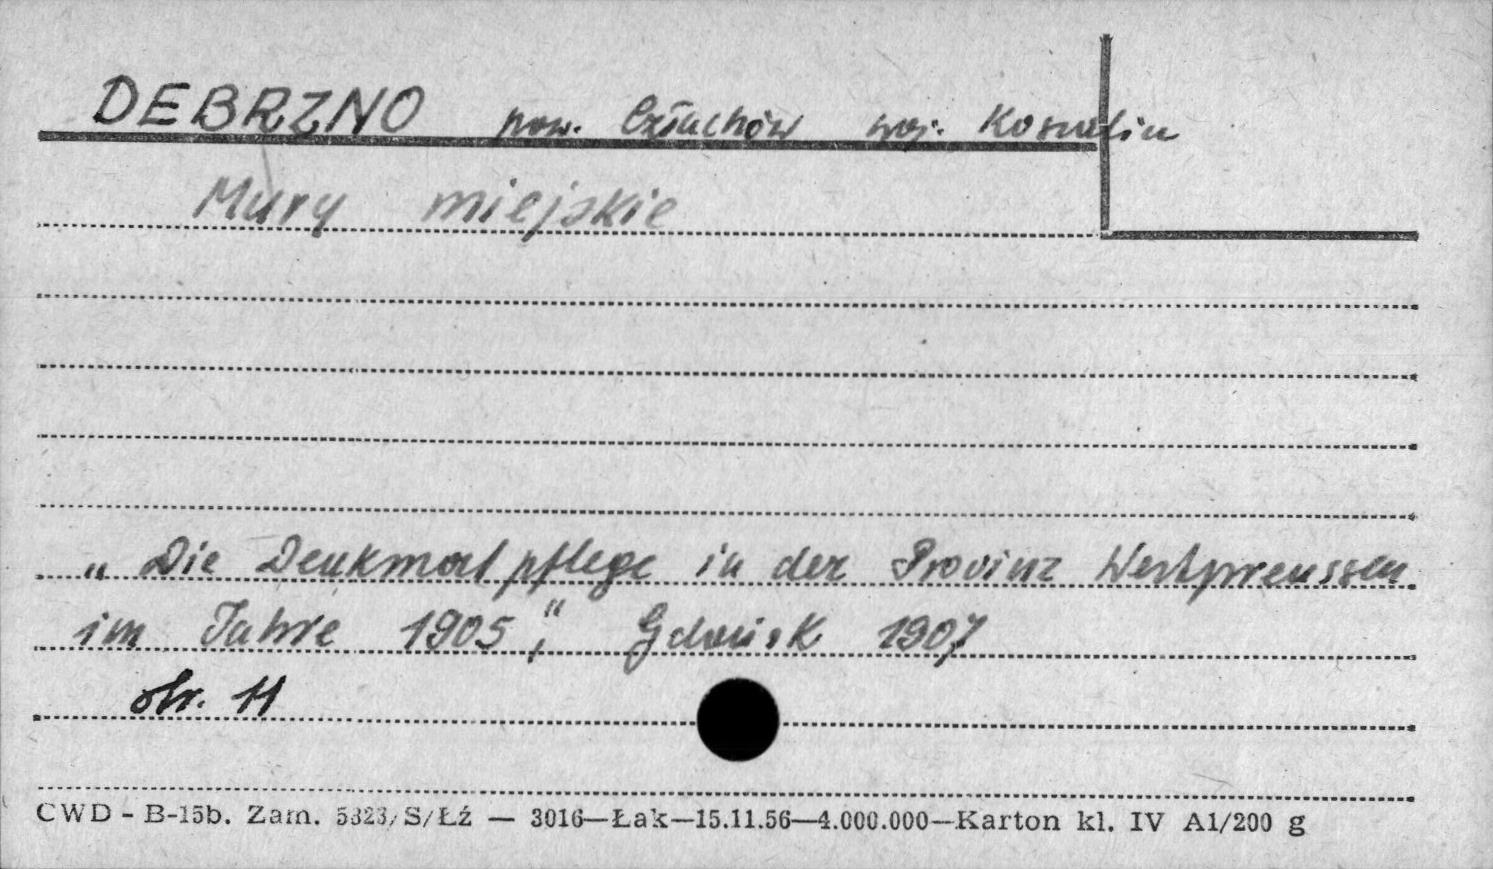 DEBRZNO pow. Człuchów woj. Koszalin
Mury miejskie
„Die Denkmalpflege in der Provinz Westpreussen
im Jahre 1905", Gdańsk 1907
str. 11
CWD - B-15b. Zam. 5323/S/Łź — 3016—Łak—15.11.56—4.000.000—Karton kl. IV A1/200 g